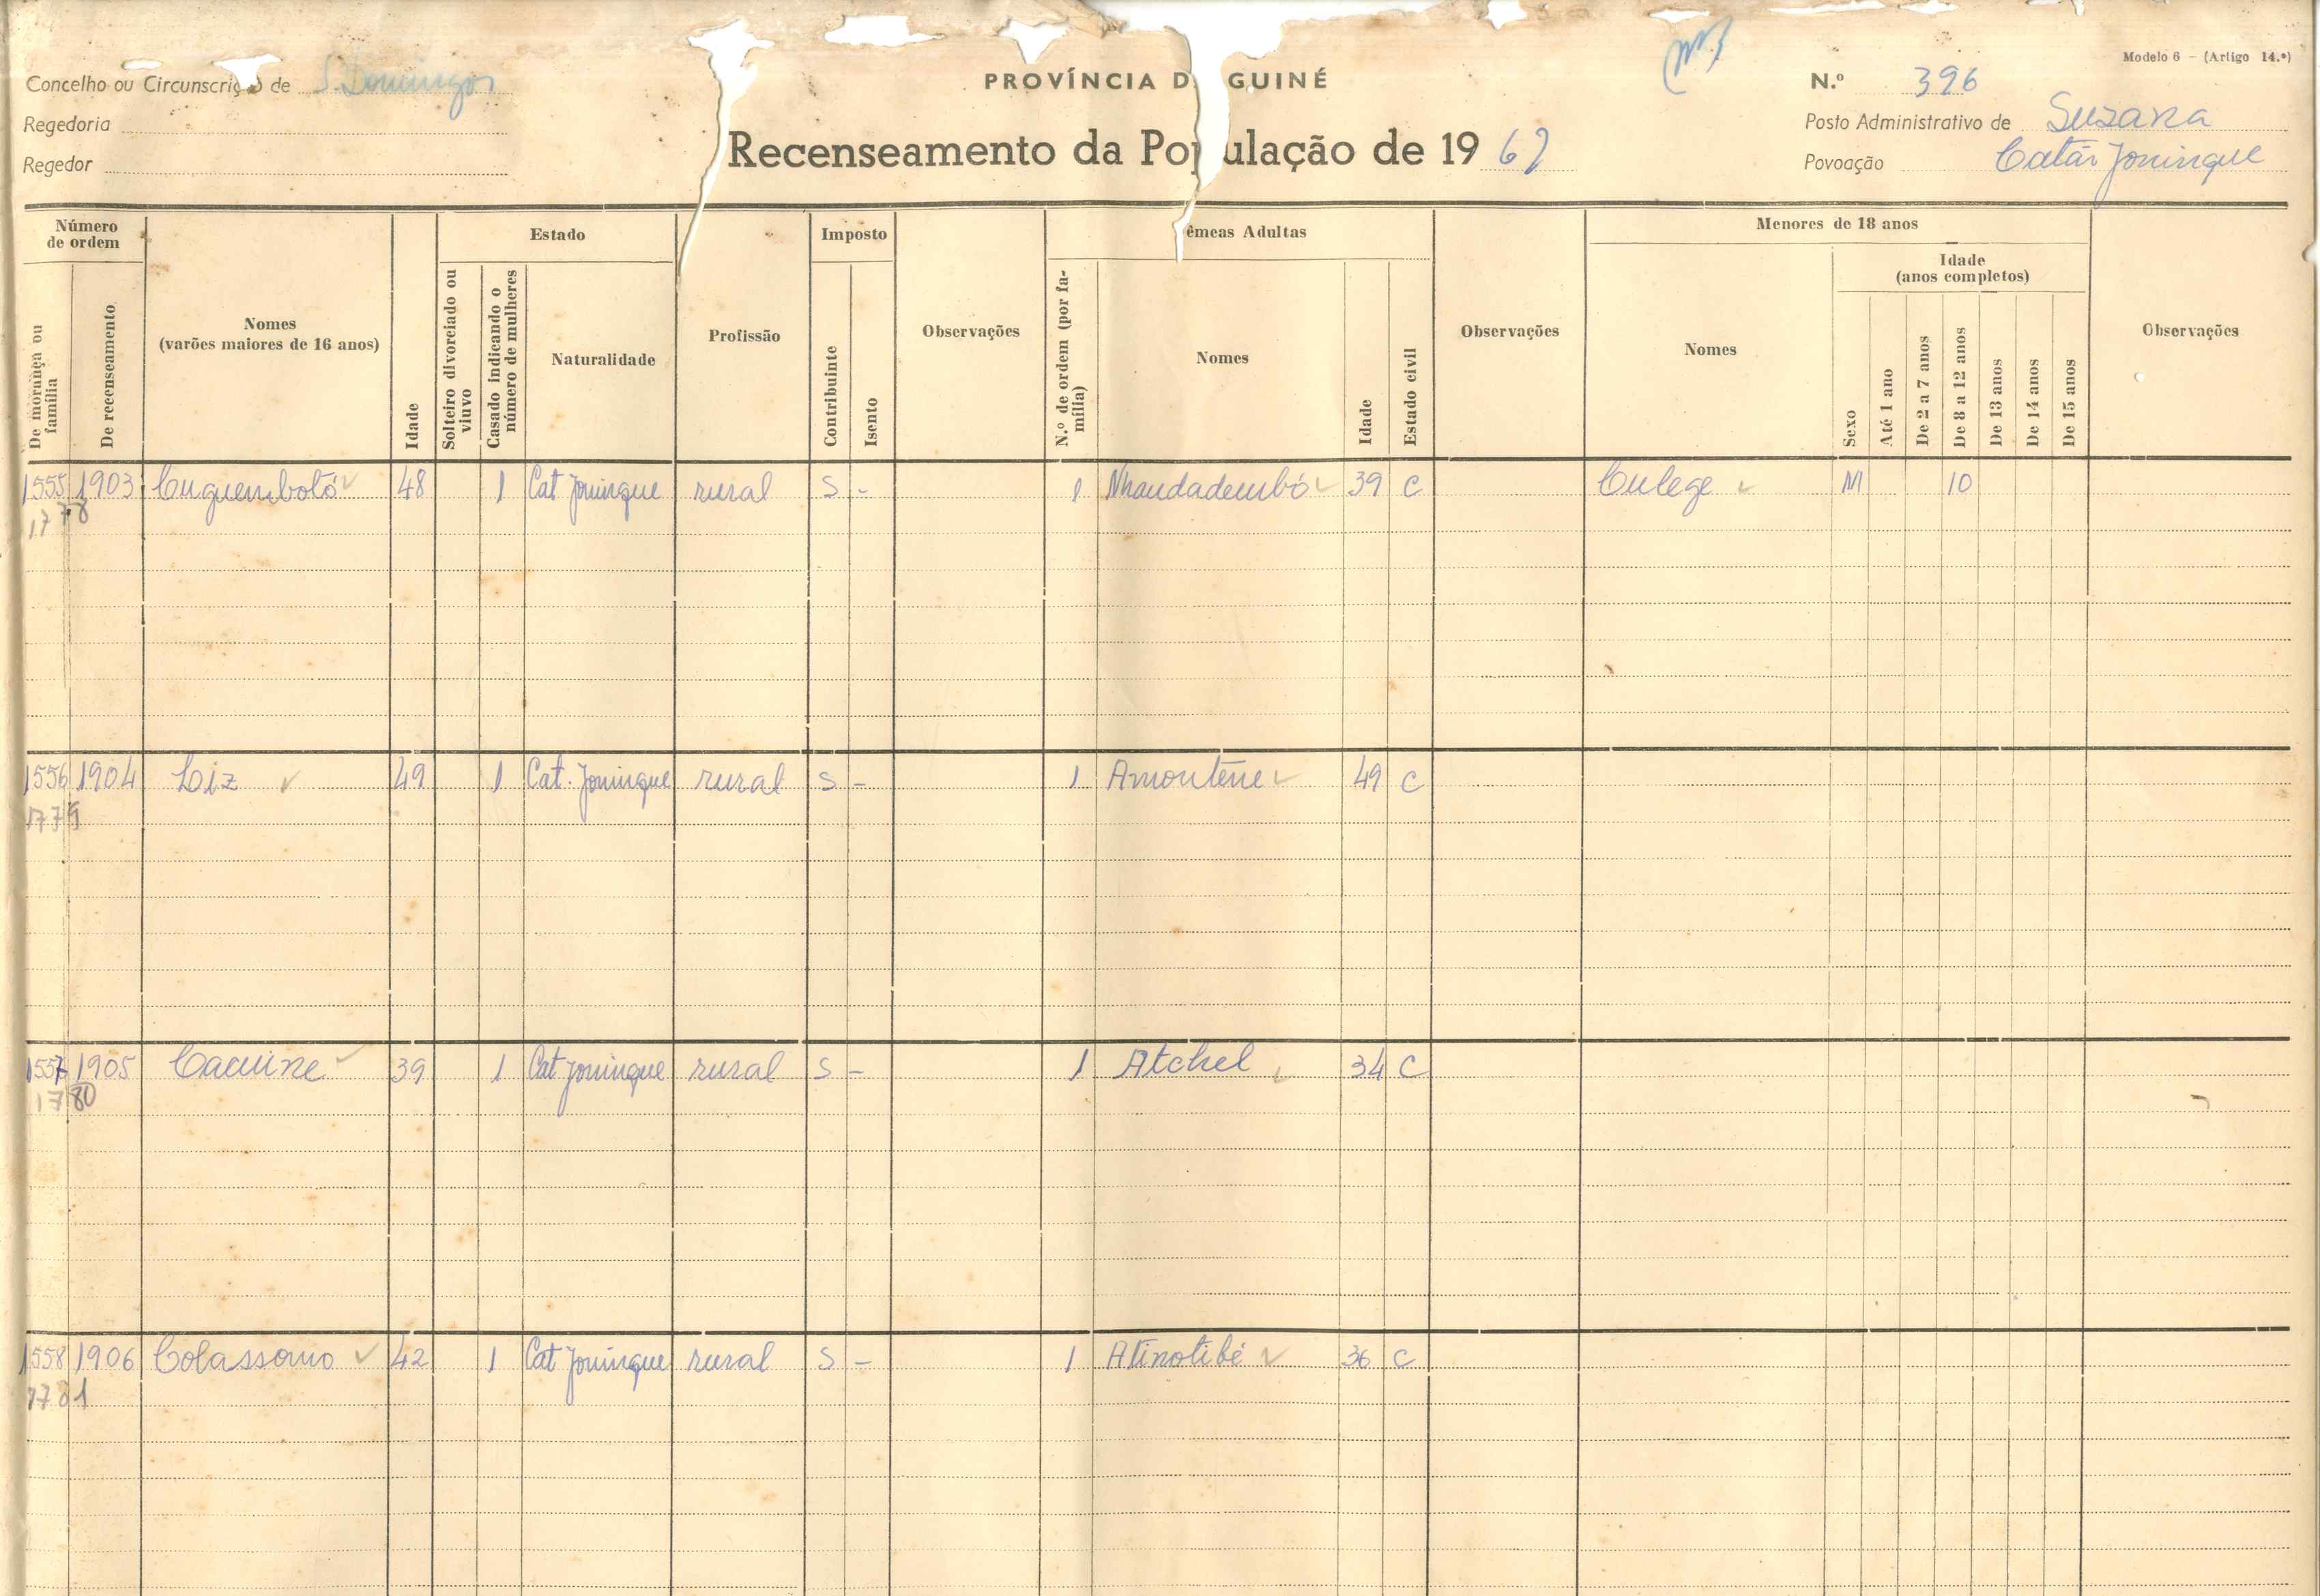 Modelo 6 — (Artigo 14.º)
Concelho ou Circunscrição de S. Domingos
PROVÍNCIA D GUINÉ
N.º 396
Regedoria
Posto Administrativo de Suzana
Regedor
Recenseamento da Po ulação de 1969
Povoação Catão Joninque
Número de ordem
Estado
Imposto
êmeas Adultas
Menores de 18 anos
Idade (anos completos)
De morança ou família
De recenseamento
Nomes (varões maiores de 16 anos)
Idade
Solteiro divorciado ou viuvo
Casado indicando o número de mulheres
Naturalidade
Profissão
Contribuinte
Isento
Observações
N.º de ordem (por família)
Nomes
Idade
Estado civil
Observações
Nomes
Sexo
Até 1 ano
De 2 a 7 anos
De 8 a 12 anos
De 13 anos
De 14 anos
De 15 anos
Observações
1555 1903 Cuguembotó 48 1 Cat Joninque rural S - 1 Nhandadembó 39 C Culege M 10
1778
1556 1904 Liz 49 1 Cat. Joninque rural S - 1 Amontène 49 C
1779
1557 1905 Caurine 39 1 Cat Joninque rural S - 1 Atchel 34 C
1780
1558 1906 Colassomo 42 1 Cat Joninque rural S - 1 Atinotibé 36 C
1781